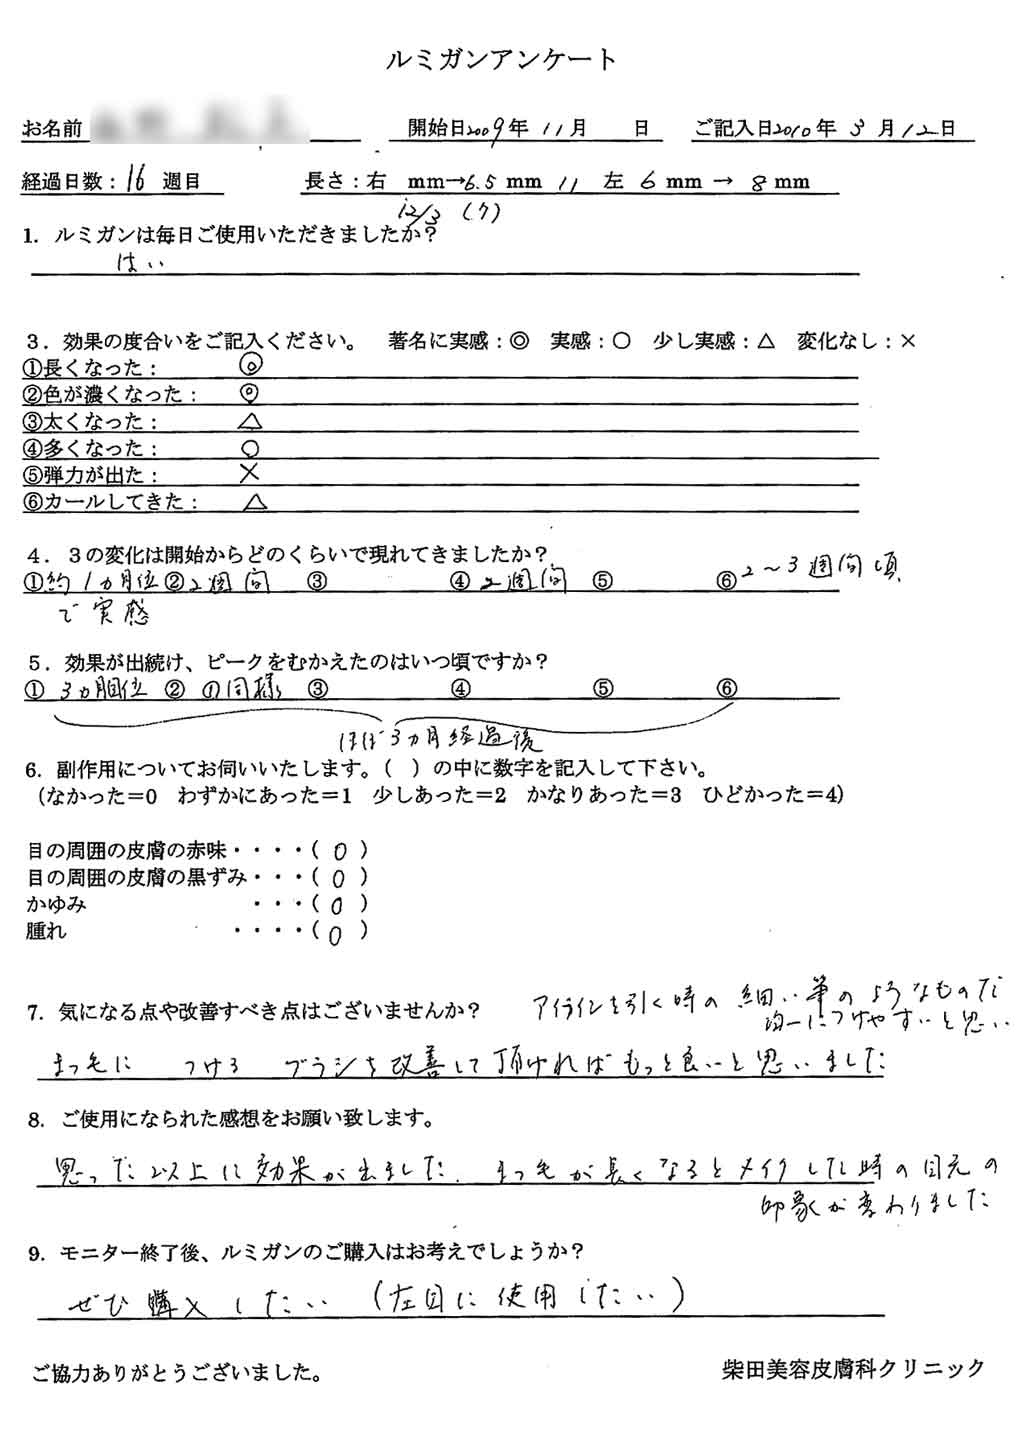 ルミガンアンケート
お名前 開始日2009年 11月 日 ご記入日2010年 3月12日
経過日数：16 週目 長さ：右 mm→6.5 mm 11 左 6 mm → 8 mm
12/3 (7)
1. ルミガンは毎日ご使用いただきましたか？
はい
３．効果の度合いをご記入ください。 著名に実感：◎ 実感：○ 少し実感：△ 変化なし：×
①長くなった： ◎
②色が濃くなった： ◎
③太くなった： △
④多くなった： ○
⑤弾力が出た： ×
⑥カールしてきた： △
４．３の変化は開始からどのくらいで現れてきましたか？
①約1ヵ月位 ②2週間 ③ ④2週間 ⑤ ⑥2～3週間頃
で実感
５．効果が出続け、ピークをむかえたのはいつ頃ですか？
①3ヵ月位 ② ①同様 ③ ④ ⑤ ⑥
ほぼ3ヵ月経過後
6. 副作用についてお伺いいたします。（ ）の中に数字を記入して下さい。
（なかった＝0 わずかにあった＝1 少しあった＝2 かなりあった＝3 ひどかった＝4）
目の周囲の皮膚の赤味・・・・（ 0 ）
目の周囲の皮膚の黒ずみ・・・（ 0 ）
かゆみ ・・・（ 0 ）
腫れ ・・・・（ 0 ）
7. 気になる点や改善すべき点はございませんか？ アイラインを引く時の細い筆のようなものだと
均一につけやすいと思い
まつ毛に つける ブラシを改善して頂ければもっと良いと思いました
8. ご使用になられた感想をお願い致します。
思った以上に効果が出ました。まつ毛が長くなるとメイクした時の目元の
印象が変わりました
9. モニター終了後、ルミガンのご購入はお考えでしょうか？
ぜひ購入したい （左目に使用したい）
ご協力ありがとうございました。 柴田美容皮膚科クリニック